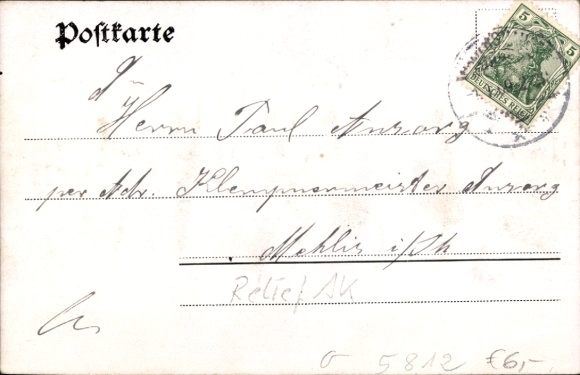 Postkarte
5 5
DEUTSCHES REICH
Herrn Paul Anzorg
per Adr. Klempnermeister Anzorg
Mehlis i/Th
Relief AK
5812 €6,-